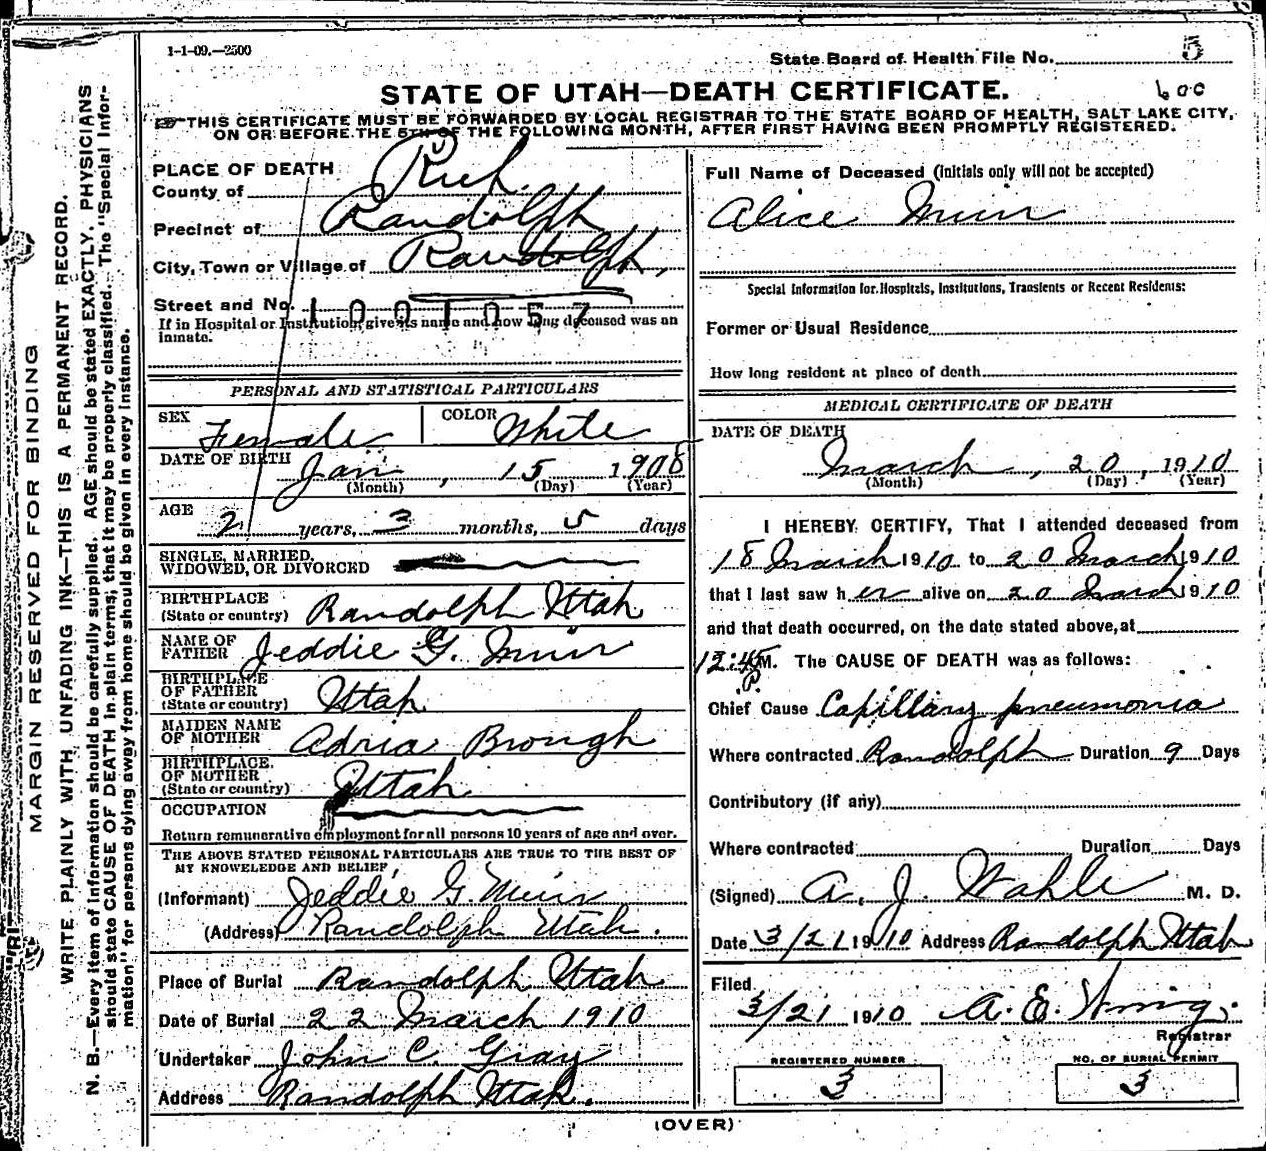 1-1-09.—2500
State Board of Health File No. 5
STATE OF UTAH—DEATH CERTIFICATE.
600
THIS CERTIFICATE MUST BE FORWARDED BY LOCAL REGISTRAR TO THE STATE BOARD OF HEALTH, SALT LAKE CITY,
ON OR BEFORE THE 5TH OF THE FOLLOWING MONTH, AFTER FIRST HAVING BEEN PROMPTLY REGISTERED.
MARGIN RESERVED FOR BINDING
WRITE PLAINLY WITH UNFADING INK—THIS IS A PERMANENT RECORD.
N. B.—Every item of information should be carefully supplied. AGE should be stated EXACTLY. PHYSICIANS
should state CAUSE OF DEATH in plain terms, that it may be properly classified. The "Special Infor-
mation" for persons dying away from home should be given in every instance.
PLACE OF DEATH
County of Rich
Precinct of Randolph
City, Town or Village of Randolph,
Street and No.
1001057
If in Hospital or Institution, give its name and how long deceased was an
inmate.
PERSONAL AND STATISTICAL PARTICULARS
SEX Female COLOR White
DATE OF BIRTH Jan, 15 1908
(Month) (Day) (Year)
AGE 2 years, 3 months, 5 days
SINGLE, MARRIED,
WIDOWED, OR DIVORCED
BIRTHPLACE
(State or country) Randolph Utah
NAME OF
FATHER Jeddie G. Muir
BIRTHPLACE
OF FATHER
(State or country) Utah
MAIDEN NAME
OF MOTHER Adria Brough
BIRTHPLACE
OF MOTHER
(State or country) Utah
OCCUPATION
Return remunerative employment for all persons 10 years of age and over.
THE ABOVE STATED PERSONAL PARTICULARS ARE TRUE TO THE BEST OF
MY KNOWELEDGE AND BELIEF
(Informant) Jeddie G. Muir
(Address) Randolph Utah.
Place of Burial Randolph Utah
Date of Burial 22 March 1910
Undertaker John C. Gray
Address Randolph Utah.
Full Name of Deceased (Initials only will not be accepted)
Alice Muir
Special Information for Hospitals, Institutions, Transients or Recent Residents:
Former or Usual Residence
How long resident at place of death
MEDICAL CERTIFICATE OF DEATH
DATE OF DEATH
March, 20, 1910
(Month) (Day) (Year)
I HEREBY CERTIFY, That I attended deceased from
18 March 1910 to 20 March 1910
that I last saw her alive on 20 March 1910
and that death occurred, on the date stated above, at
12:45 P. M. The CAUSE OF DEATH was as follows:
Chief Cause Capillary pneumonia
Where contracted Randolph Duration 9 Days
Contributory (if any)
Where contracted Duration Days
(Signed) A. J. Wahle M. D.
Date 3/21 1910 Address Randolph Utah
Filed
3/21 1910 A. E.
Registrar
REGISTERED NUMBER
3
NO. OF BURIAL PERMIT
3
(OVER)